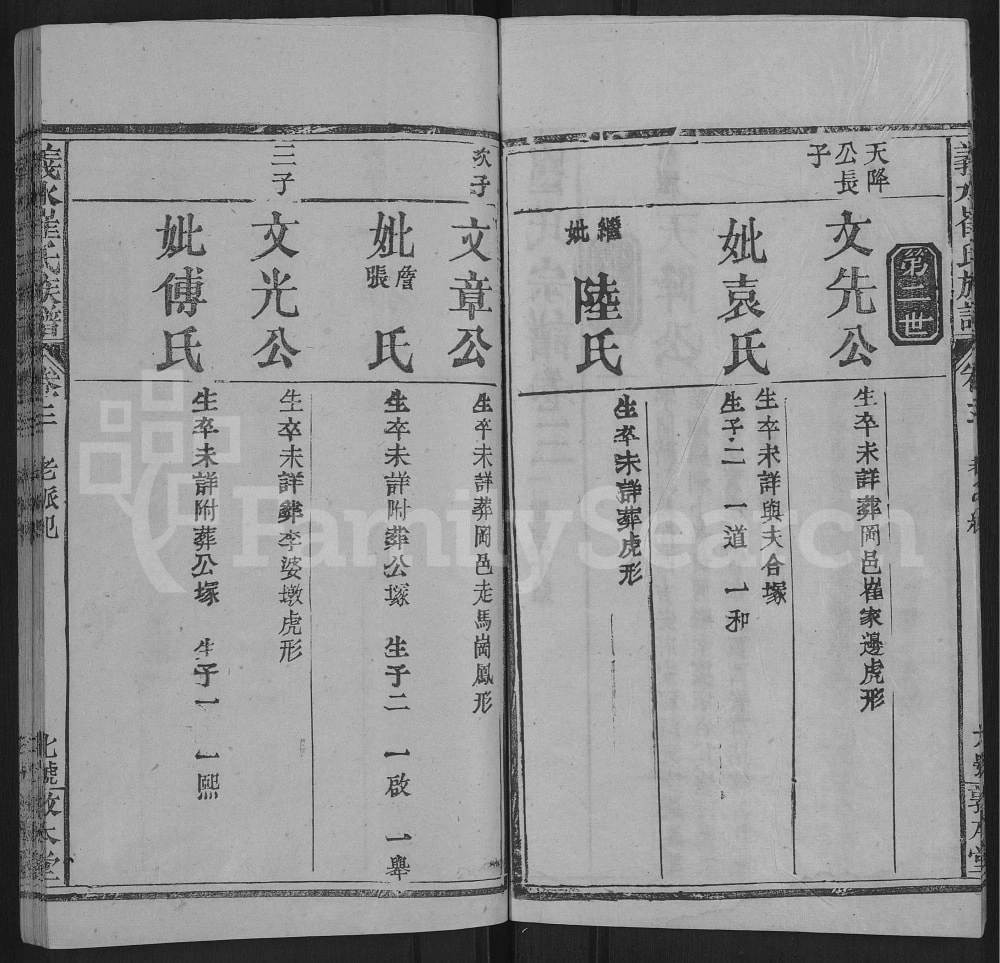 第二世
天降
公長
子
文先公
生卒未詳葬岡邑崔家邊虎形
妣袁氏
生卒未詳與夫合塚
生子二 一道 一和
繼妣陸氏
生卒未詳葬虎形
次子
文章公
生卒未詳葬岡邑走馬崗鳳形
妣詹張氏
生卒未詳附葬公塚 生子二 一啟 一舉
三子
文光公
生卒未詳葬李婆墩虎形
妣傅氏
生卒未詳附葬公塚 生子一 一熙
義水崔氏族譜 卷三
敦本堂
FamilySearch